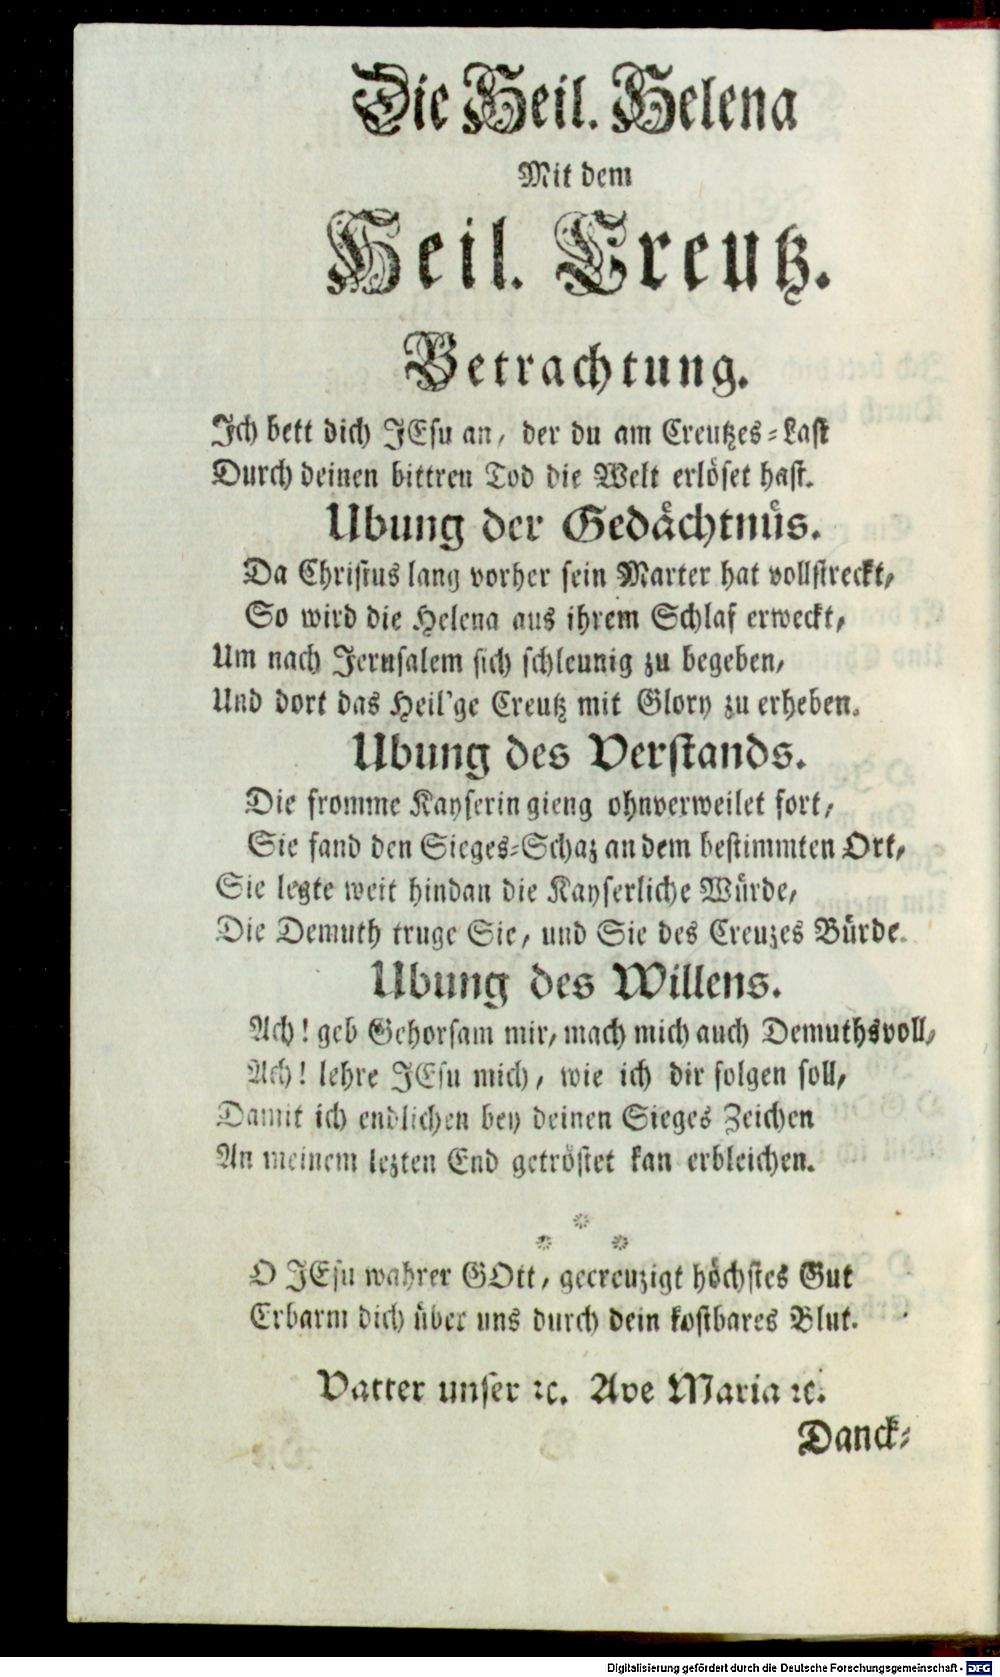 Die Heil. Helena
Mit dem
Heil. Creutz.
Betrachtung.
Ich bett dich JEsu an, der du am Creutzes-Last
Durch deinen bittren Tod die Welt erlöset hast.
Ubung der Gedächtnüs.
Da Christus lang vorher sein Marter hat vollstreckt,
So wird die Helena aus ihrem Schlaf erweckt,
Um nach Jerusalem sich schleunig zu begeben,
Und dort das Heil'ge Creutz mit Glory zu erheben.
Ubung des Verstands.
Die fromme Kayserin gieng ohnverweilet fort,
Sie fand den Sieges-Schaz an dem bestimmten Ort,
Sie legte weit hindan die Kayserliche Würde,
Die Demuth truge Sie, und Sie des Creuzes Bürde.
Ubung des Willens.
Ach! geb Gehorsam mir, mach mich auch Demuthsvoll,
Ach! lehre JEsu mich, wie ich dir folgen soll,
Damit ich endlichen bey deinen Sieges Zeichen
An meinem lezten End getröstet kan erbleichen.
*
* *
O JEsu wahrer GOtt, gecreuzigt höchstes Gut
Erbarm dich über uns durch dein kostbares Blut.
Vatter unser ꝛc. Ave Maria ꝛc.
Danck-
Digitalisierung gefördert durch die Deutsche Forschungsgemeinschaft - DFG